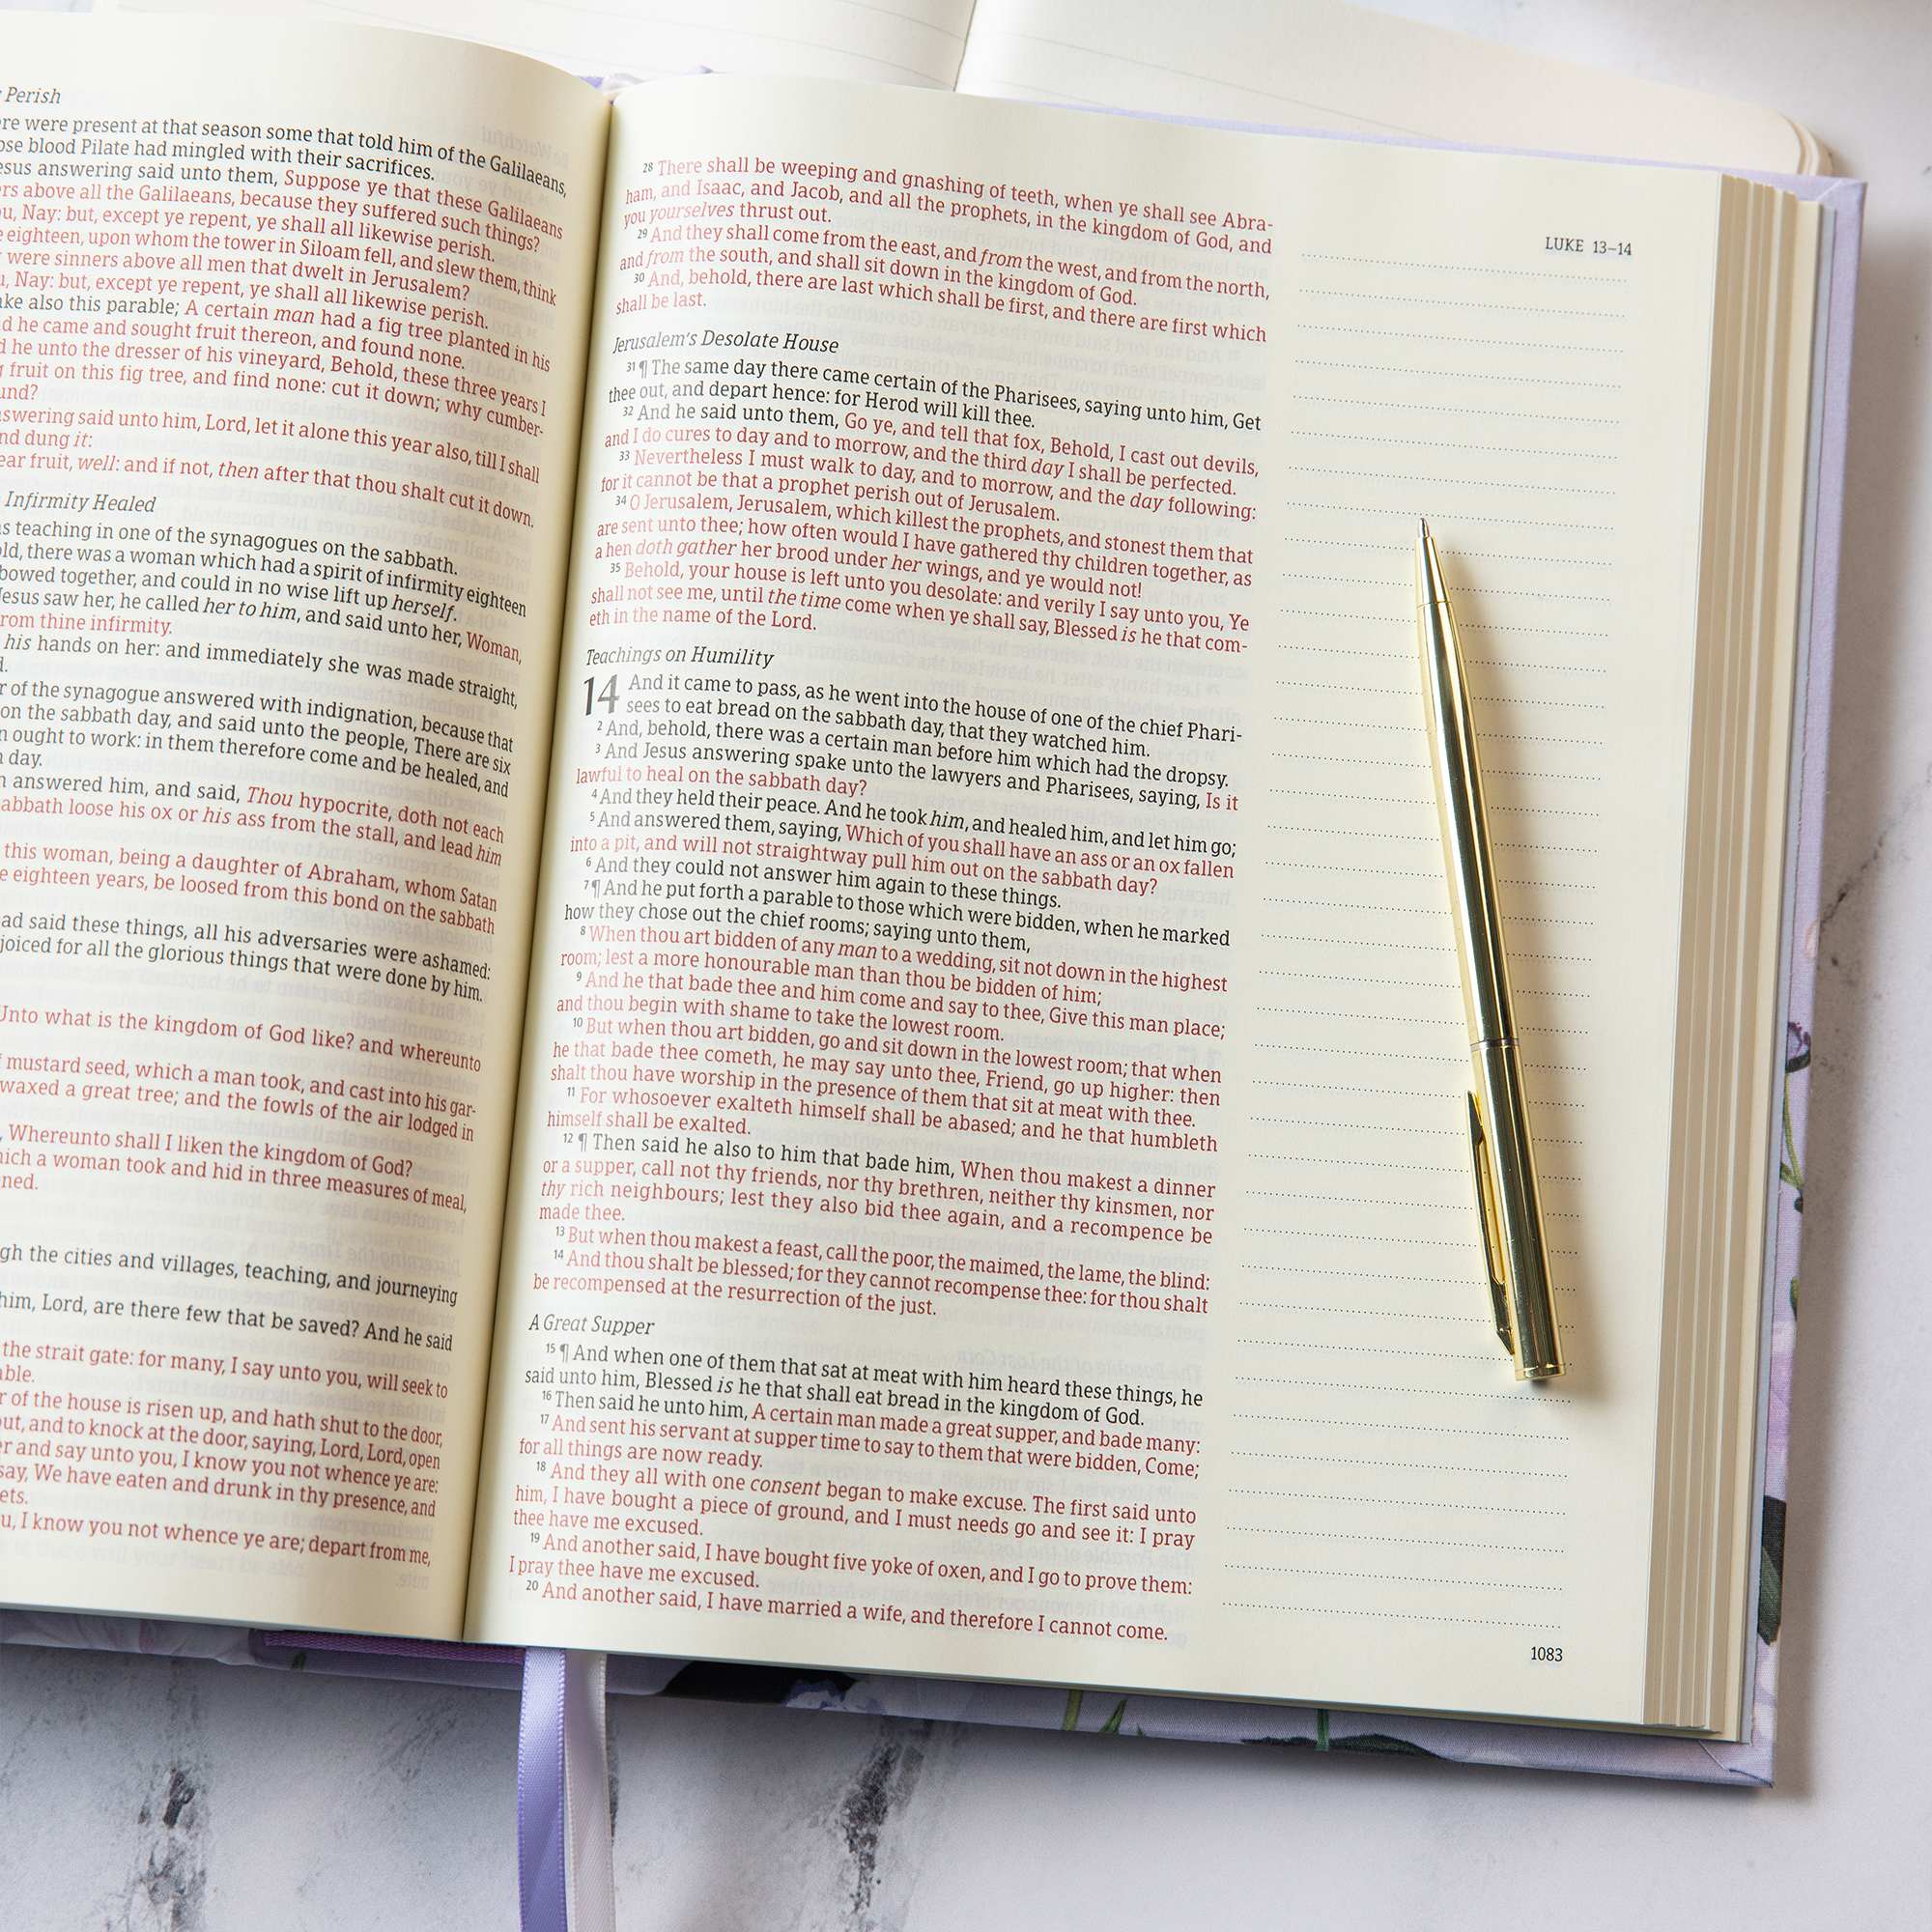 Perish
ere were present at that season some that told him of the Galilaeans,
ose blood Pilate had mingled with their sacrifices.
esus answering said unto them, Suppose ye that these Galilaeans
ers above all the Galilaeans, because they suffered such things?
u, Nay: but, except ye repent, ye shall all likewise perish.
e eighteen, upon whom the tower in Siloam fell, and slew them, think
were sinners above all men that dwelt in Jerusalem?
u, Nay: but, except ye repent, ye shall all likewise perish.
ake also this parable; A certain man had a fig tree planted in his
d he came and sought fruit thereon, and found none.
d he unto the dresser of his vineyard, Behold, these three years I
g fruit on this fig tree, and find none: cut it down; why cumber-
und?
nswering said unto him, Lord, let it alone this year also, till I shall
nd dung it:
ear fruit, well: and if not, then after that thou shalt cut it down.
Infirmity Healed
as teaching in one of the synagogues on the sabbath.
old, there was a woman which had a spirit of infirmity eighteen
bowed together, and could in no wise lift up herself.
Jesus saw her, he called her to him, and said unto her, Woman,
rom thine infirmity.
his hands on her: and immediately she was made straight,
d.
r of the synagogue answered with indignation, because that
on the sabbath day, and said unto the people, There are six
n ought to work: in them therefore come and be healed, and
h day.
n answered him, and said, Thou hypocrite, doth not each
abbath loose his ox or his ass from the stall, and lead him
this woman, being a daughter of Abraham, whom Satan
e eighteen years, be loosed from this bond on the sabbath
ad said these things, all his adversaries were ashamed:
joiced for all the glorious things that were done by him.
Unto what is the kingdom of God like? and whereunto
f mustard seed, which a man took, and cast into his gar-
waxed a great tree; and the fowls of the air lodged in
, Whereunto shall I liken the kingdom of God?
hich a woman took and hid in three measures of meal,
ned.
gh the cities and villages, teaching, and journeying
him, Lord, are there few that be saved? And he said
the strait gate: for many, I say unto you, will seek to
able.
r of the house is risen up, and hath shut to the door,
out, and to knock at the door, saying, Lord, Lord, open
er and say unto you, I know you not whence ye are:
say, We have eaten and drunk in thy presence, and
ets.
u, I know you not whence ye are; depart from me,
LUKE 13–14
28 There shall be weeping and gnashing of teeth, when ye shall see Abra-
ham, and Isaac, and Jacob, and all the prophets, in the kingdom of God, and
you yourselves thrust out.
29 And they shall come from the east, and from the west, and from the north,
and from the south, and shall sit down in the kingdom of God.
30 And, behold, there are last which shall be first, and there are first which
shall be last.
Jerusalem's Desolate House
31 ¶ The same day there came certain of the Pharisees, saying unto him, Get
thee out, and depart hence: for Herod will kill thee.
32 And he said unto them, Go ye, and tell that fox, Behold, I cast out devils,
and I do cures to day and to morrow, and the third day I shall be perfected.
33 Nevertheless I must walk to day, and to morrow, and the day following:
for it cannot be that a prophet perish out of Jerusalem.
34 O Jerusalem, Jerusalem, which killest the prophets, and stonest them that
are sent unto thee; how often would I have gathered thy children together, as
a hen doth gather her brood under her wings, and ye would not!
35 Behold, your house is left unto you desolate: and verily I say unto you, Ye
shall not see me, until the time come when ye shall say, Blessed is he that com-
eth in the name of the Lord.
Teachings on Humility
14 And it came to pass, as he went into the house of one of the chief Phari-
sees to eat bread on the sabbath day, that they watched him.
2 And, behold, there was a certain man before him which had the dropsy.
3 And Jesus answering spake unto the lawyers and Pharisees, saying, Is it
lawful to heal on the sabbath day?
4 And they held their peace. And he took him, and healed him, and let him go;
5 And answered them, saying, Which of you shall have an ass or an ox fallen
into a pit, and will not straightway pull him out on the sabbath day?
6 And they could not answer him again to these things.
7 ¶ And he put forth a parable to those which were bidden, when he marked
how they chose out the chief rooms; saying unto them,
8 When thou art bidden of any man to a wedding, sit not down in the highest
room; lest a more honourable man than thou be bidden of him;
9 And he that bade thee and him come and say to thee, Give this man place;
and thou begin with shame to take the lowest room.
10 But when thou art bidden, go and sit down in the lowest room; that when
he that bade thee cometh, he may say unto thee, Friend, go up higher: then
shalt thou have worship in the presence of them that sit at meat with thee.
11 For whosoever exalteth himself shall be abased; and he that humbleth
himself shall be exalted.
12 ¶ Then said he also to him that bade him, When thou makest a dinner
or a supper, call not thy friends, nor thy brethren, neither thy kinsmen, nor
thy rich neighbours; lest they also bid thee again, and a recompence be
made thee.
13 But when thou makest a feast, call the poor, the maimed, the lame, the blind:
14 And thou shalt be blessed; for they cannot recompense thee: for thou shalt
be recompensed at the resurrection of the just.
A Great Supper
15 ¶ And when one of them that sat at meat with him heard these things, he
said unto him, Blessed is he that shall eat bread in the kingdom of God.
16 Then said he unto him, A certain man made a great supper, and bade many:
17 And sent his servant at supper time to say to them that were bidden, Come;
for all things are now ready.
18 And they all with one consent began to make excuse. The first said unto
him, I have bought a piece of ground, and I must needs go and see it: I pray
thee have me excused.
19 And another said, I have bought five yoke of oxen, and I go to prove them:
I pray thee have me excused.
20 And another said, I have married a wife, and therefore I cannot come.
1083